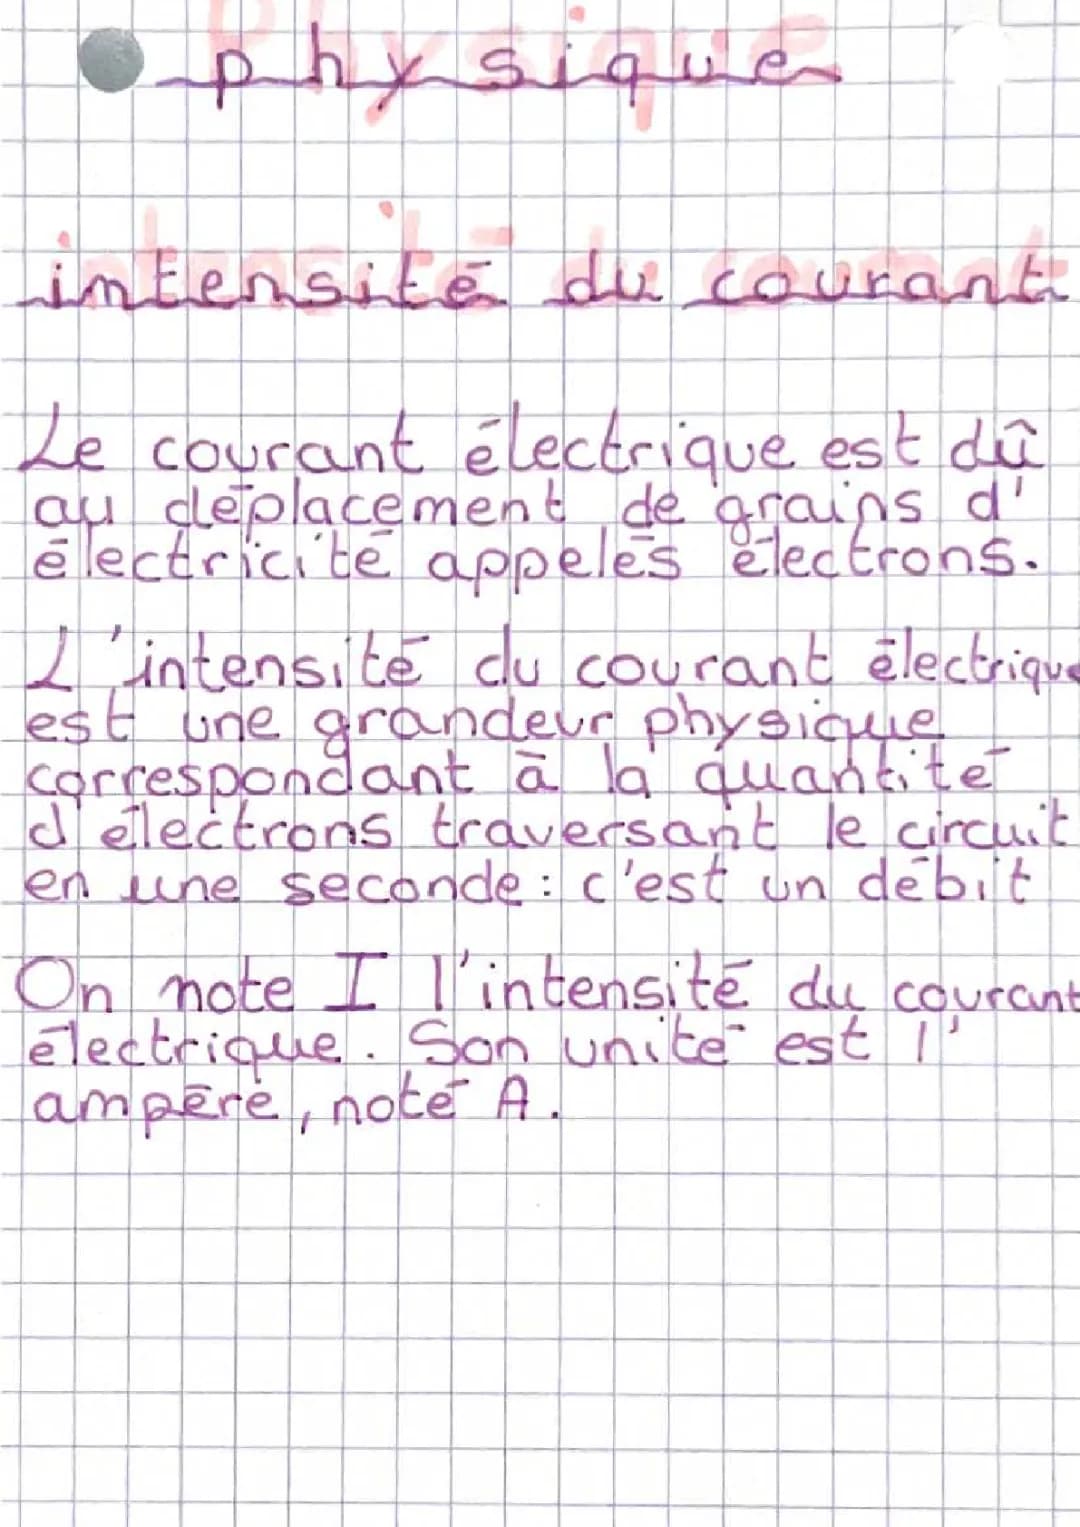 physique
intensité du courant
Le courant électrique est dû
au déplacement de grains d'
électricité appelés électrons.
L'intensité du courant électrique
est une grandeur physique
correspondant à la quantité
d'électrons traversant le circuit
en une seconde : c'est un débit
On note I l'intensité du courant
électrique. Son unité est l'
ampère, noté A.